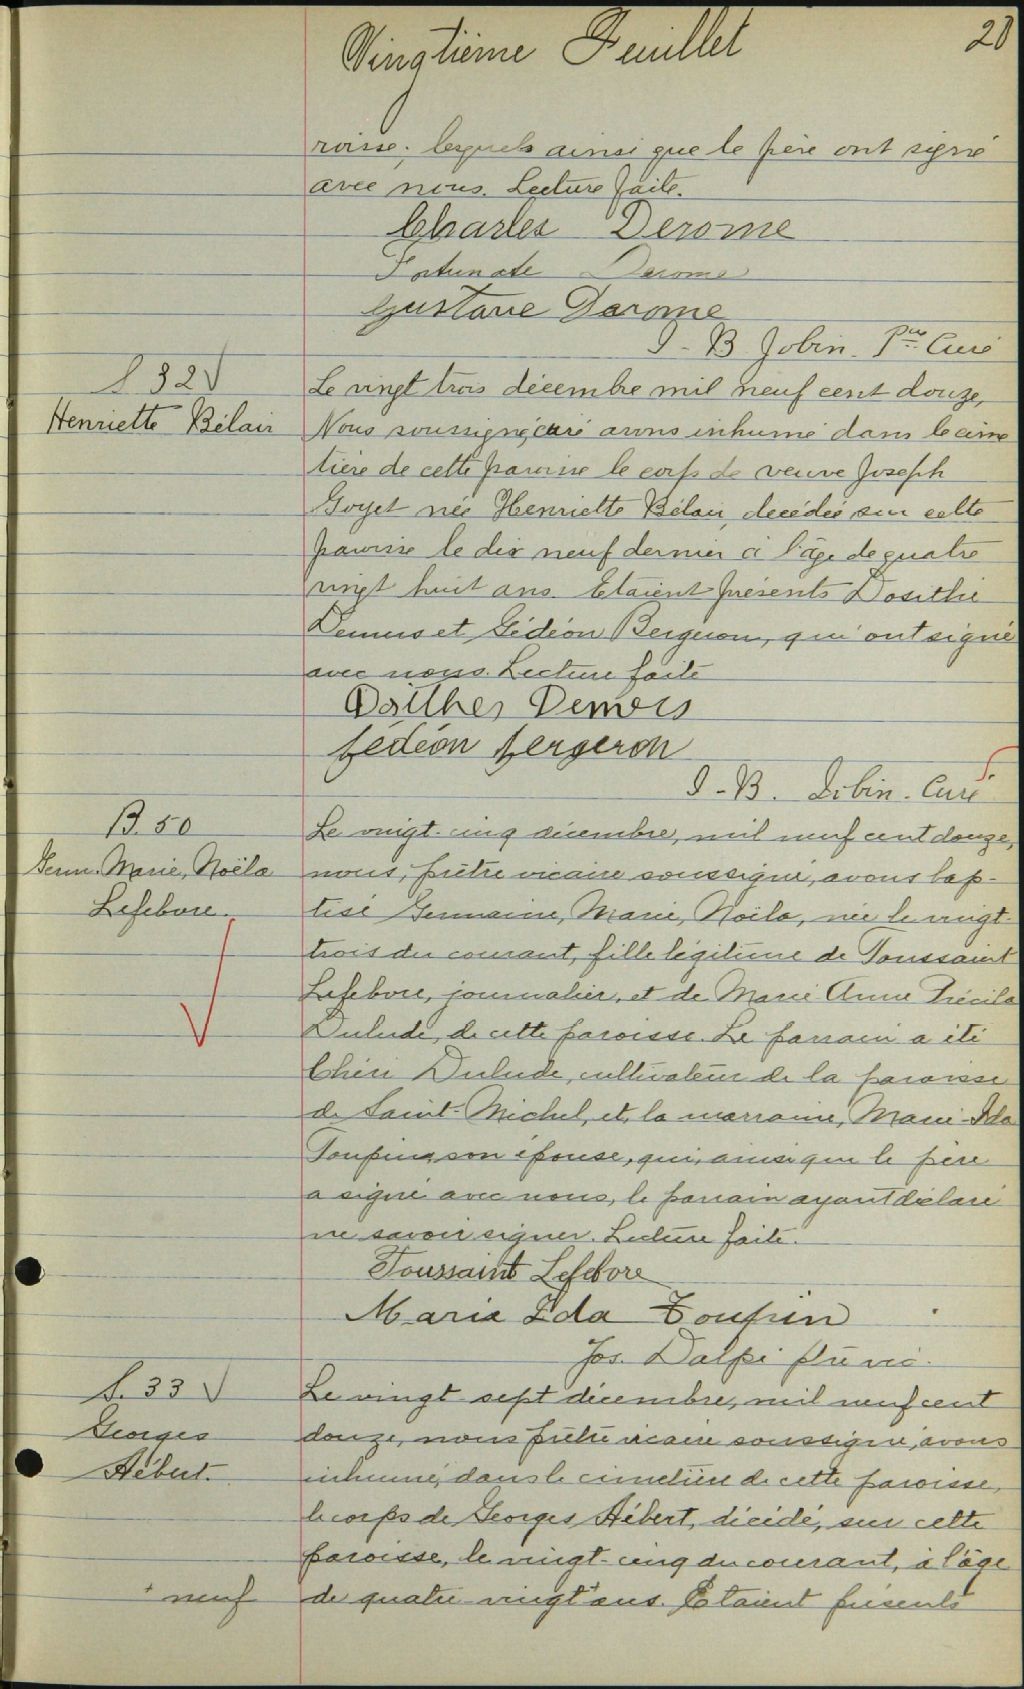 Vingtième Feuillet 20
roisse; lesquels ainsi que le père ont signé
avec nous. Lecture faite.
Charles Derome
Fortunate Derome
Gustave Derome
J-B Jobin. Ptre Curé
S 32 √
Henriette Bélair
Le vingt trois décembre mil neuf cent douze,
Nous soussigné, curé avons inhumé dans le cime
tière de cette paroisse le corps de veuve Joseph
Goyet née Henriette Bélair, decédée sur cette
paroisse le dix neuf dernier à l'âge de quatre
vingt huit ans. Etaient présents Dosithé
Demers et Gédéon Bergeron, qui ont signé
avec nous. Lecture faite
Demers
Gédéon Bergeron
J-B. Jobin. Curé
B. 50
Germ. Marie, Noëla
Lefebvre.
Le vingt-cinq décembre, mil neuf cent douze,
nous, prêtre vicaire soussigné, avons bap-
tisé Germaine, Marie, Noëla, née le vingt-
trois du courant, fille légitime de Toussaint
Lefebvre, journalier, et de Marie Anne Précila
Dulude, de cette paroisse. Le parrain a été
Chéri Dulude, cultivateur de la paroisse
de Saint-Michel, et, la marraine, Marie-Ida
Toupin, son épouse, qui, ainsi que le père
a signé avec nous, le parrain ayant déclaré
ne savoir signer. Lecture faite.
Toussaint Lefebvre
Maria Ida Toupin
Jos. Dalpé ptre vic.
S. 33 √
Georges
Hébert.
Le vingt sept décembre, mil neuf cent
douze, nous prêtre vicaire soussigné, avons
inhumé, dans le cimetière de cette paroisse,
le corps de Georges Hébert, décédé, sur cette
paroisse, le vingt-cinq du courant, à l'âge
de quatre vingt + ans. Etaient présents
+ neuf